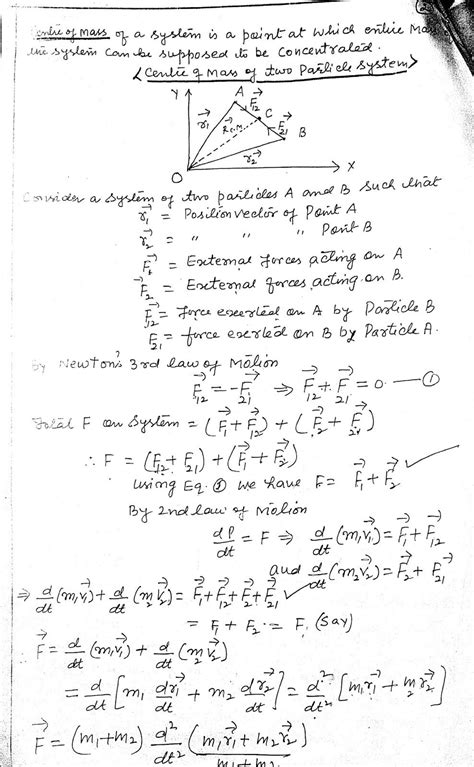 Centre of Mass of a system is a point at which entire Mass
the system can be supposed to be concentrated.
< Centre of Mass of two Particle System >
Y A F⃗₁₂
r⃗₁ R⃗ C.M. C F⃗₂₁ B
r⃗₂
O X
Consider a system of two particles A and B such that
r⃗₁ = Position vector of Point A
r⃗₂ = " " " Point B
F⃗₁ = External forces acting on A
F⃗₂ = External forces acting on B.
F⃗₁₂ = force exerted on A by Particle B
F⃗₂₁ = force exerted on B by Particle A.
By Newton's 3rd law of Motion
F⃗₁₂ = -F⃗₂₁ ⇒ F⃗₁₂ + F⃗₂₁ = 0 — ①
Total F on System = (F⃗₁ + F⃗₁₂) + (F⃗₂ + F⃗₂₁)
∴ F = (F⃗₁₂ + F⃗₂₁) + (F⃗₁ + F⃗₂)
using Eq. we have F = F⃗₁ + F⃗₂ ✓
By 2nd law of Motion
dP/dt = F ⇒ d/dt (m₁v⃗₁) = F⃗₁ + F⃗₁₂
and d/dt (m₂v⃗₂) = F⃗₂ + F⃗₂₁
⇒ d/dt (m₁v⃗₁) + d/dt (m₂v⃗₂) = F⃗₁ + F⃗₁₂ + F⃗₂ + F⃗₂₁ ✓
= F₁ + F₂ = F. (Say)
F⃗ = d/dt (m₁v⃗₁) + d/dt (m₂v⃗₂)
= d/dt [m₁ dr⃗₁/dt + m₂ dr⃗₂/dt] = d²/dt² [m₁r⃗₁ + m₂r⃗₂]
F⃗ = (m₁+m₂) d²/dt² (m₁r⃗₁ + m₂r⃗₂)/m₁+m₂